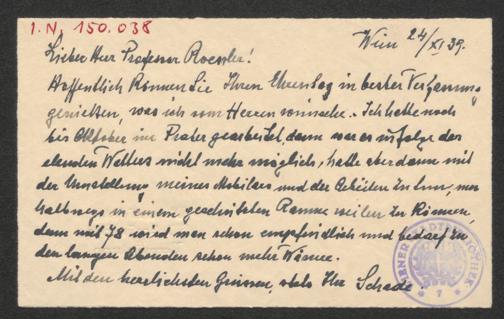 I.N. 150.038
Wien 24/XI 39.
Lieber Herr Professor Roessler!
Hoffentlich können Sie Ihren Ehrentag in bester Verfassung
genießen, was ich vom Herzen wünsche. Ich hatte noch
bis Oktober im Prater gearbeitet, dann war es zufolge des
elenden Wetters nicht mehr möglich, hatte aber dann mit
der Umstellung meines Mobilars und der Arbeiten zu tun, um
halbwegs in einem geschützten Raume weilen zu können,
denn mit 78 wird man schon empfindlich und bedarf zu
den langen Abenden schon mehr Wärme.
Mit den herzlichsten Grüssen, stets Ihr Schade
WIENER STADTBIBLIOTHEK
* 7 *